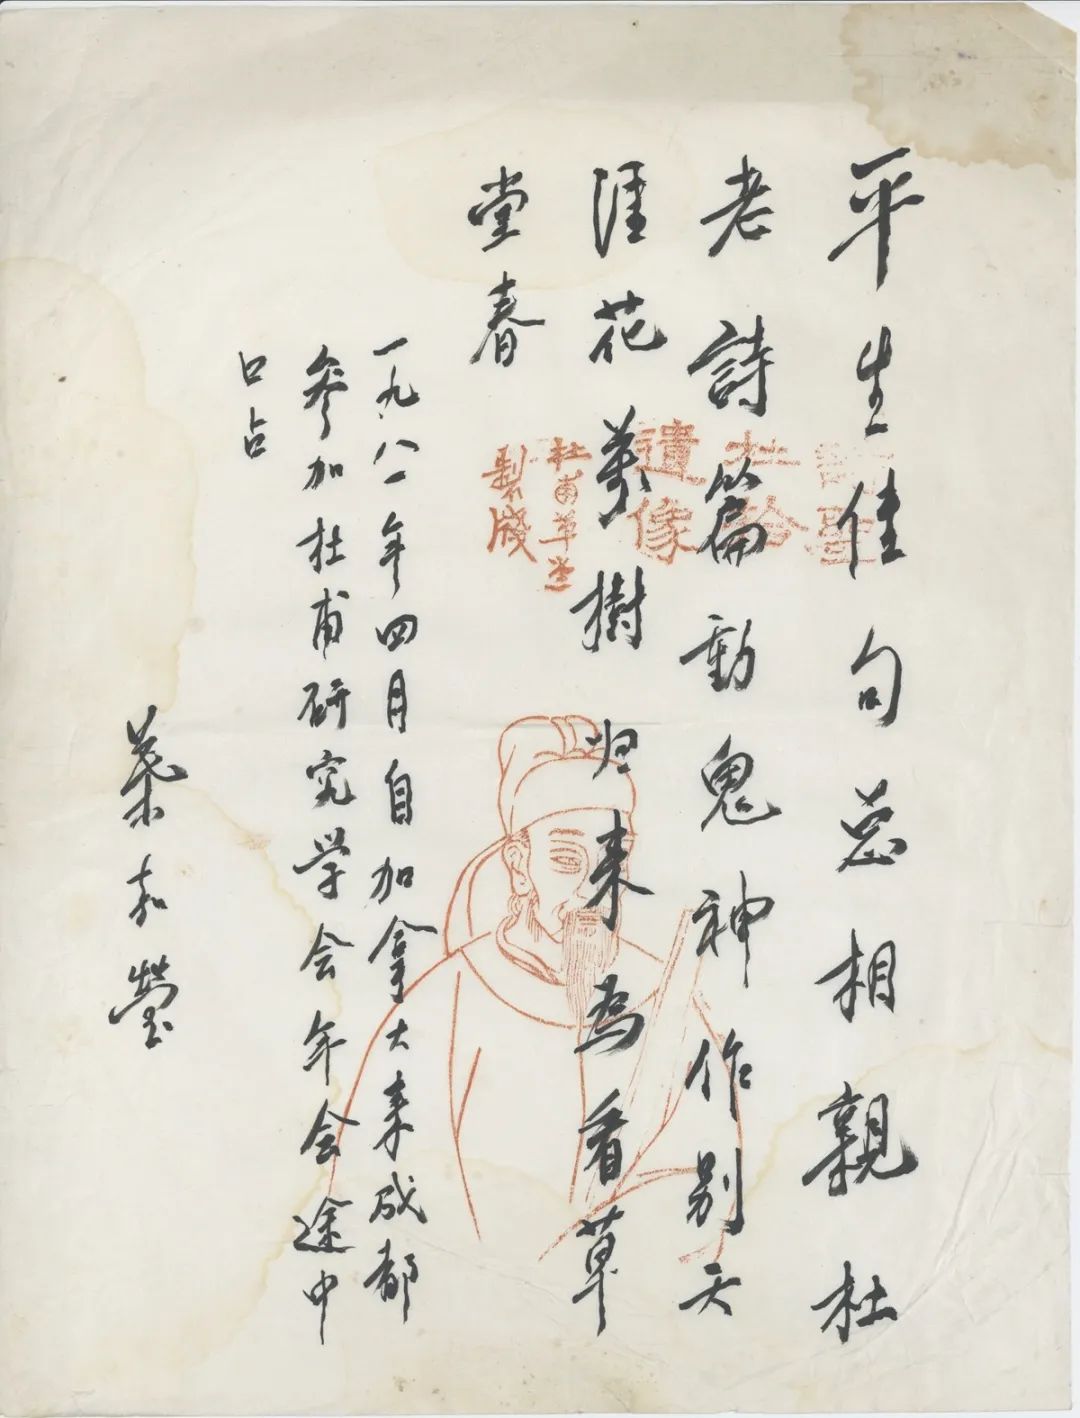 平生佳句总相親杜
老詩篇動鬼神作别天
涯花萬樹归来為看草
堂春
一九八一年四月自加拿大来成都
参加杜甫研究学会年会途中
口占
葉嘉瑩
詩聖
杜拾
遺像
杜甫草堂
製牋